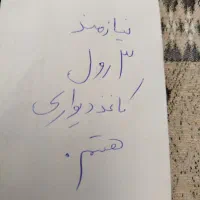 نیازمند
۳ رول
کاغذ دیواری
هستم.